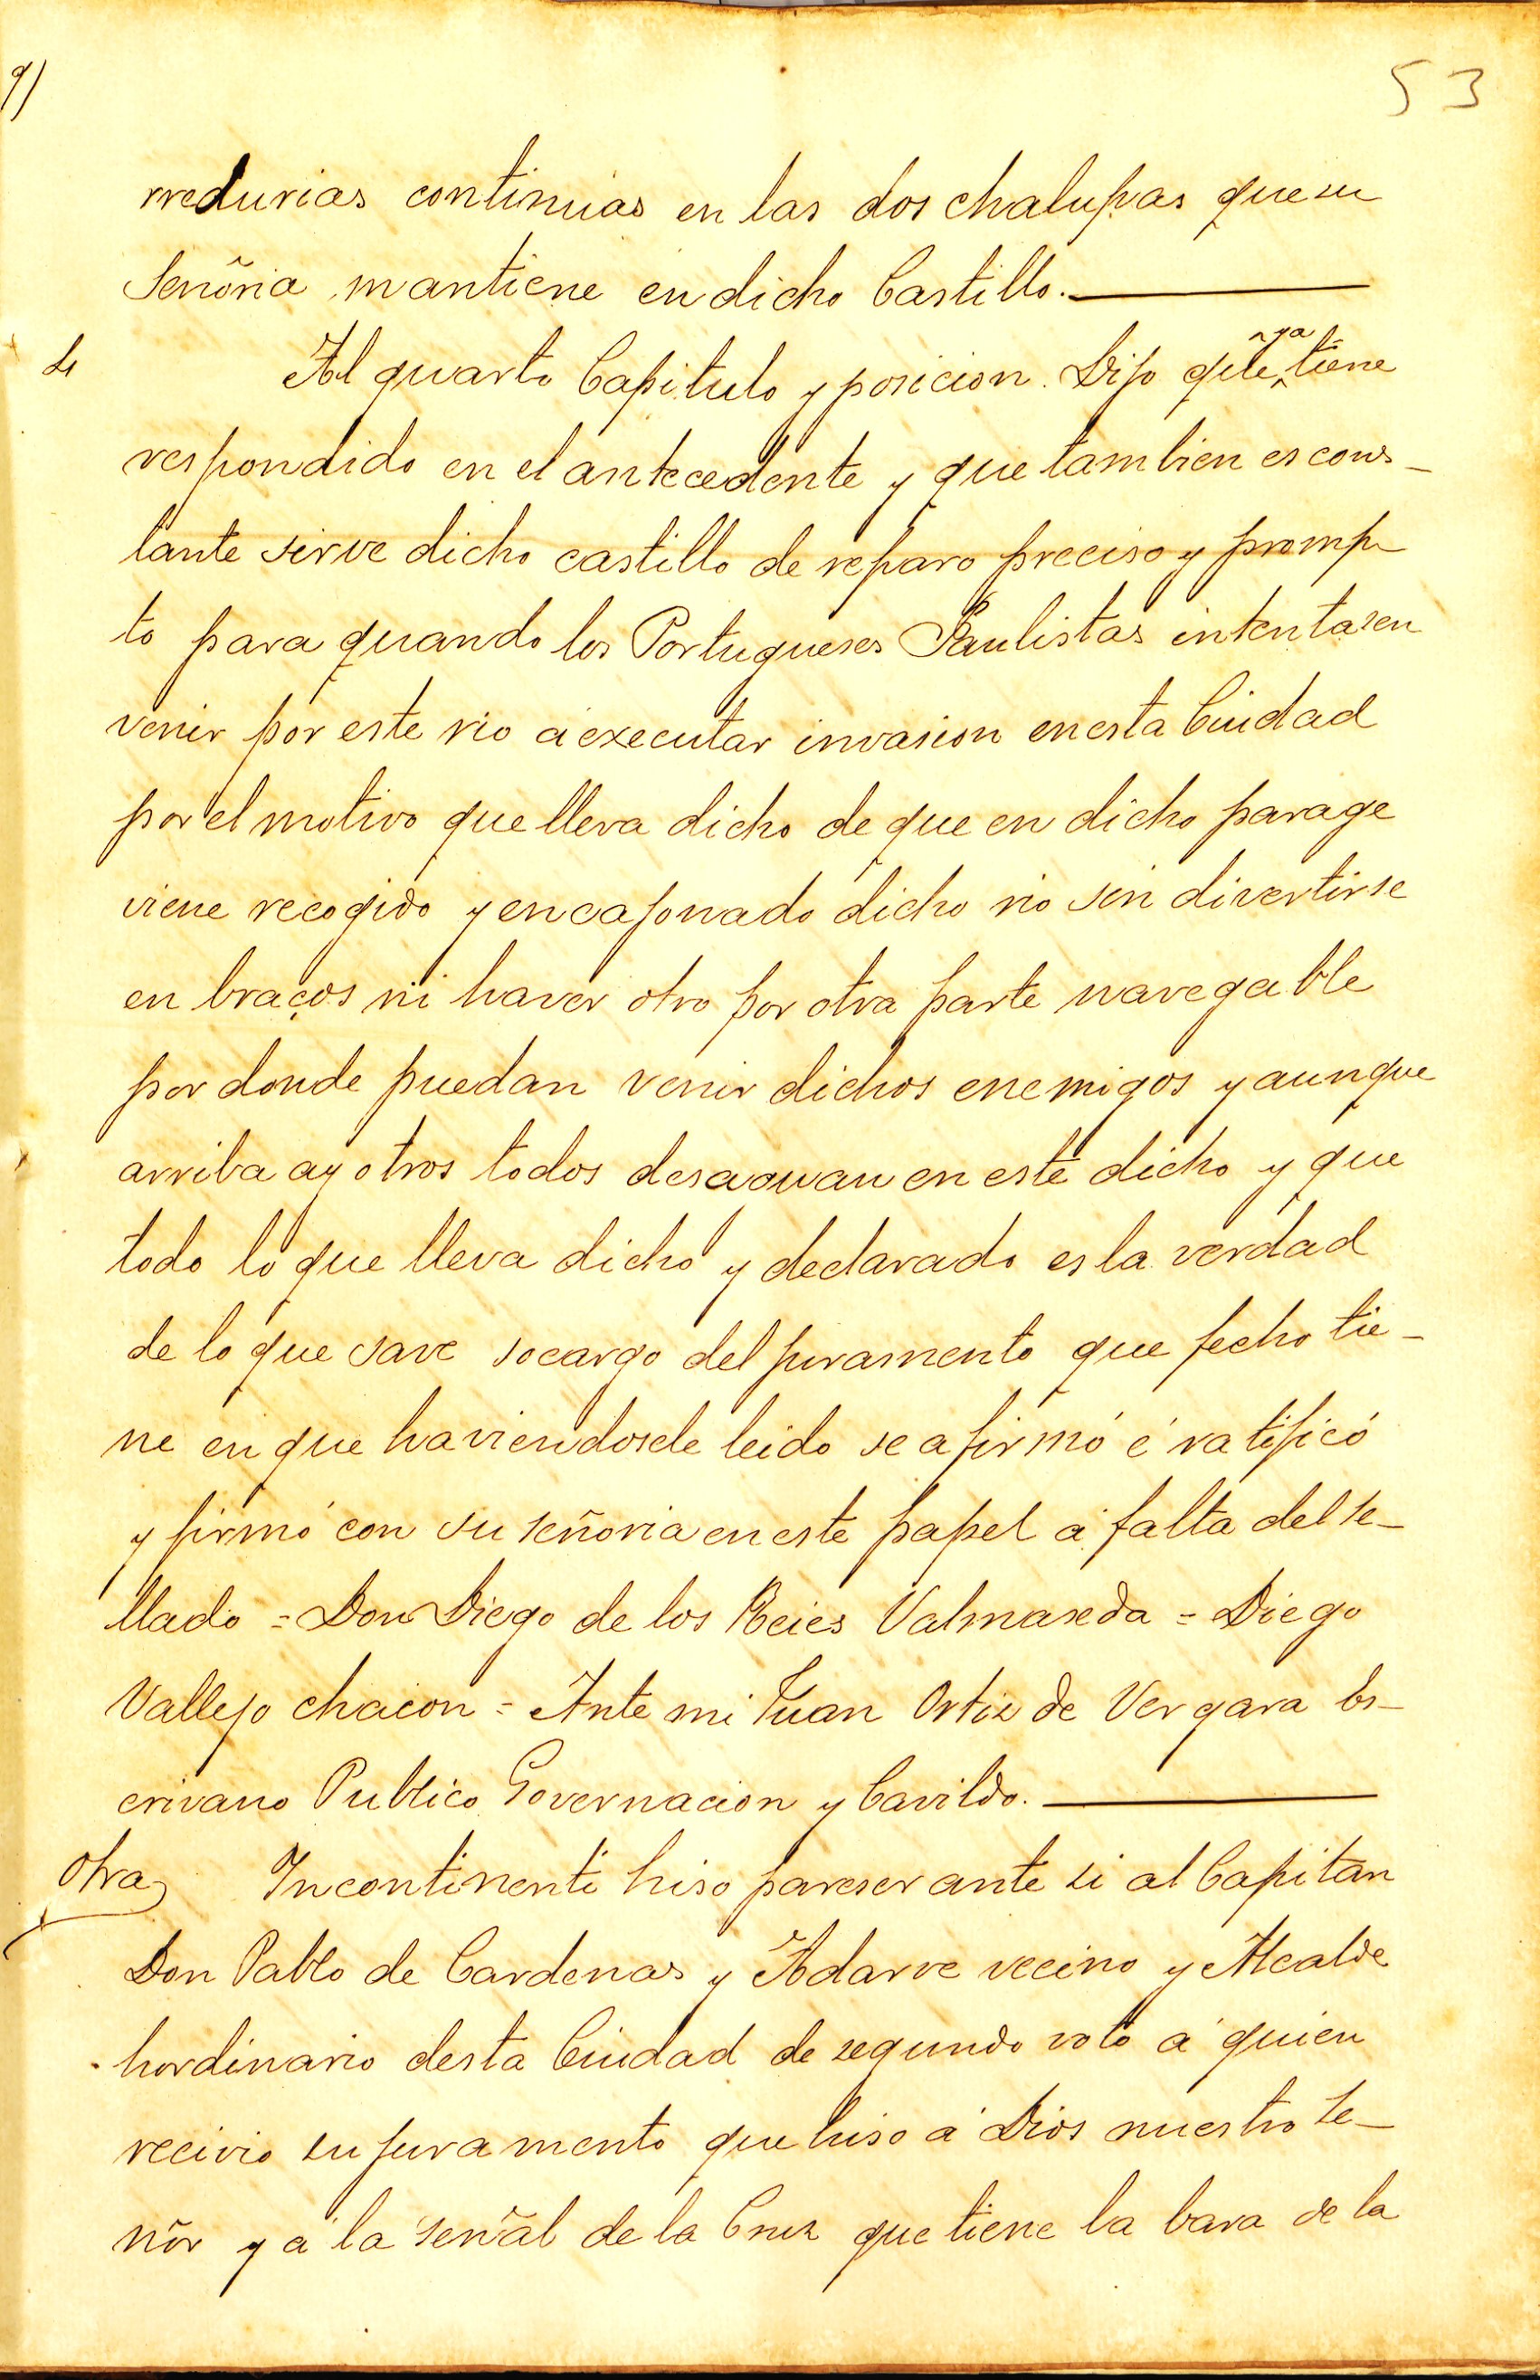 9)
53
rredurias continuas en las dos chalupas que su
señoria mantiene en dicho Castillo.
4
Al quarto Capitulo y posicion. Dijo que ya tiene
respondido en el antecedente y que tambien es cons-
tante sirve dicho castillo de reparo preciso y promp-
to para quando los Portugueses Paulistas intentasen
venir por este rio a executar invasion en esta Ciudad
por el motivo que lleva dicho de que en dicho parage
viene recogido y encajonado dicho rio sin divertirse
en braços ni haver otro por otra parte navegable
por donde puedan venir dichos enemigos y aunque
arriba ay otros todos desaguan en este dicho y que
todo lo que lleva dicho y declarado es la verdad
de lo que save socargo del juramento que fecho tie-
ne en que haviendosele leido se afirmó é ratificó
y firmó con su señoria en este papel á falta del se-
llado = Don Diego de los Reies Valmaseda = Diego
Vallejo chacon = Ante mi Juan Ortiz de Vergara Es-
crivano Publico Governacion y Cavildo.
Otra
Incontinenti hiso pareser ante si al Capitan
Don Pablo de Cardenas y Adarve vecino y Alcalde
hordinario desta Ciudad de segundo voto á quien
recivio su juramento que hiso á Dios nuestro Se-
ñor y á la señal de la Cruz que tiene la bara de la